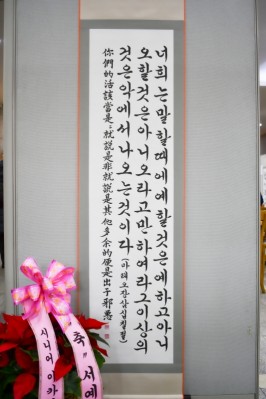 너희는말할때에예할것은예하고아니
오할것은아니오라고만하여라그이상의
것은악에서나오는것이다 (마태오장삼십칠절)
你們的活該當是是就說是非就說是其他多余的便是出于邪惡
시니어아카
"축" 서예